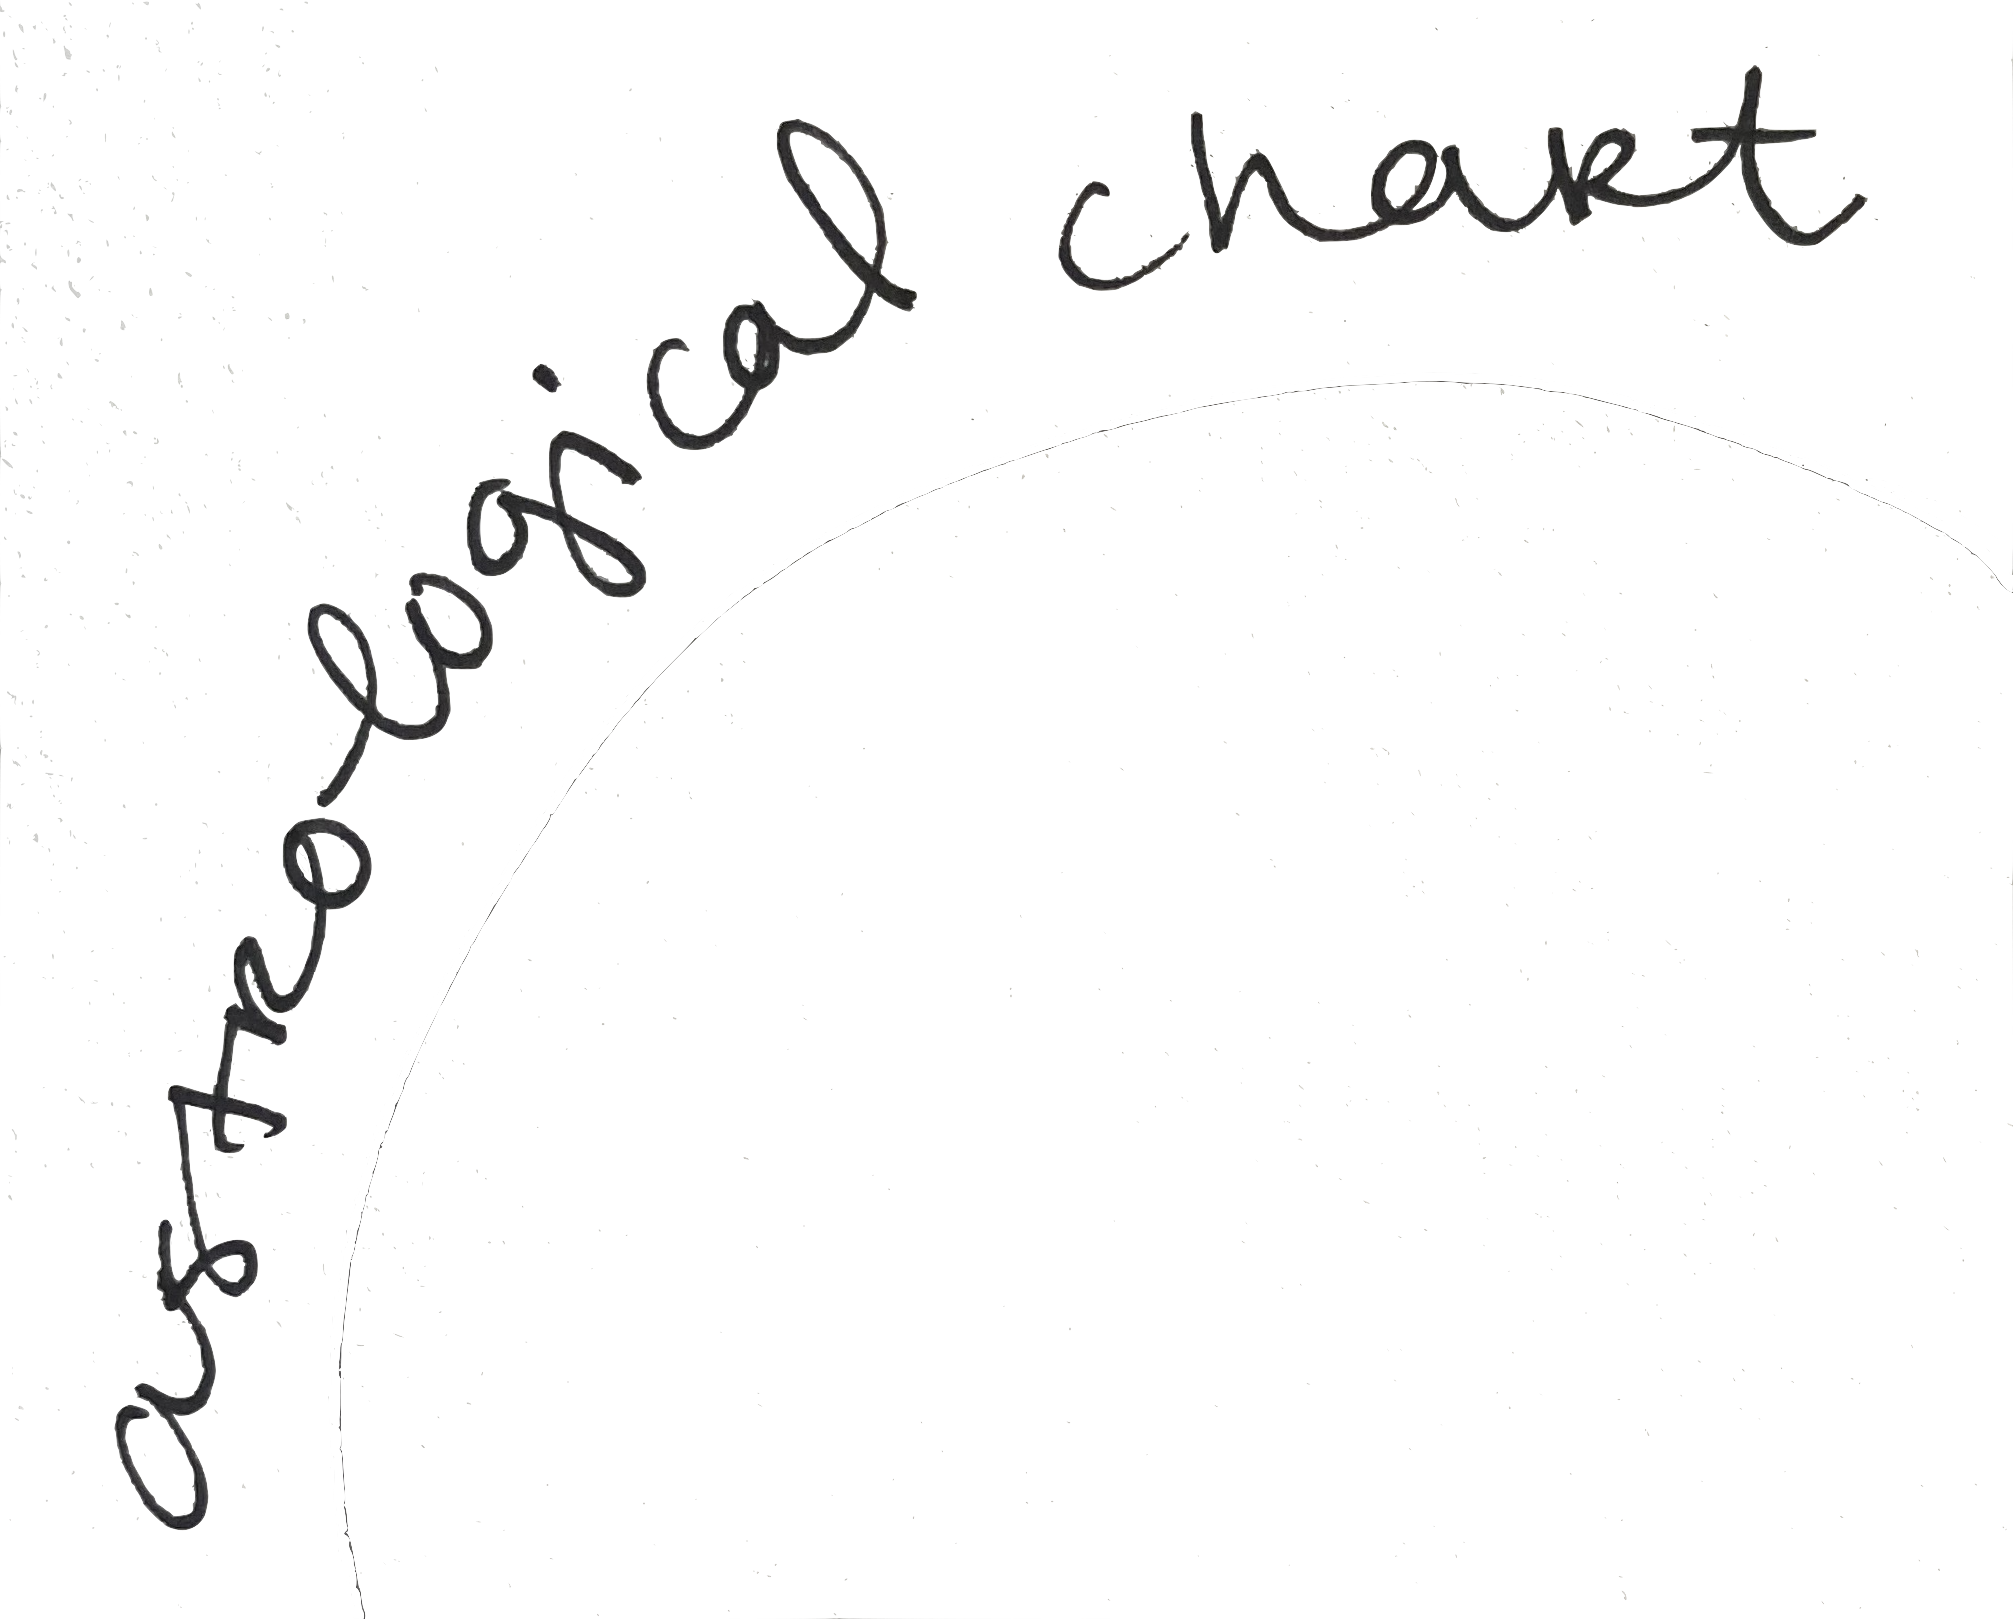 astrological chart